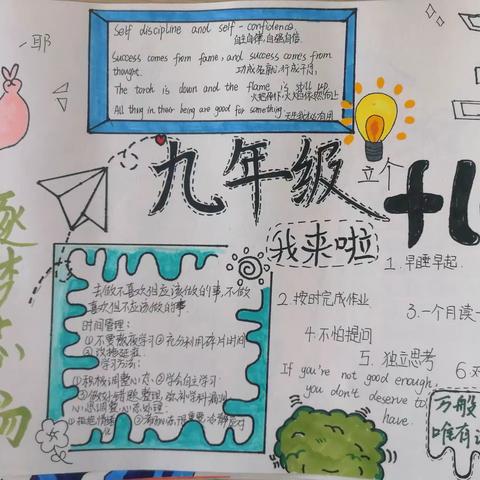 耶
Self discipline and self-confidence.
自主自律,自强自信
Success comes from fame, and success comes from
thought. 功成名就,行成于得,
The torch is down and the flame is still up
火把倒下,火焰依然向上
All thing in their being are good for something.
天生我才必有用
九年级
立个
我来啦
逐梦
扬
1.早睡早起.
2.按时完成作业
3.一个月读一
4.不怕提问
5.独立思考
6.
去做不喜欢但应该做的事,不做
喜欢但不应该做的事.
时间管理:
①不要熬夜学习②充分利用碎片时间
③戒拖延症
学习方法:
①积极调整心态、②学会自主学习
③做好错题整理,
If you're not good enough,
you don't deserve to
have.
万般
唯有